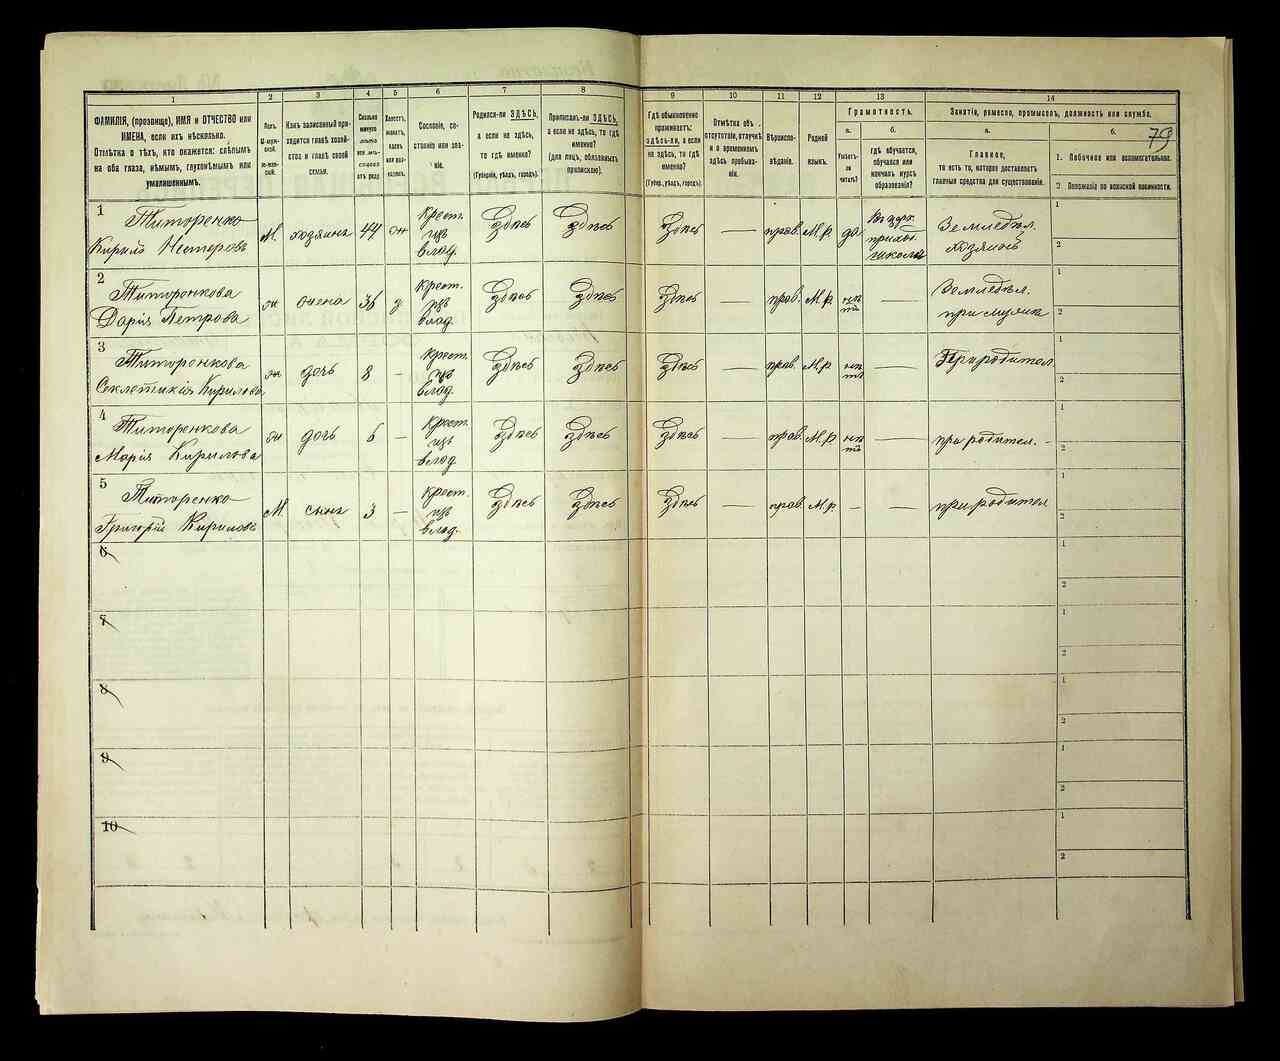 1 2 3 4 5 6 7 8 9 10 11 12 13 14
ФАМИЛІЯ, (прозвище), ИМЯ и ОТЧЕСТВО или
ИМЕНА, если ихъ нѣсколько.
Отмѣтка о тѣхъ, кто окажется: слѣпымъ
на оба глаза, нѣмымъ, глухонѣмымъ или
умалишеннымъ.
Полъ.
М-муж-
ской.
Ж-жен-
ской.
Какъ записанный при-
ходится главѣ хозяй-
ства и главѣ своей
семьи.
Сколько
минуло
лѣтъ
или мѣ-
сяцевъ
отъ роду
Холостъ,
женатъ,
вдовъ
или раз-
веденъ.
Сословіе, со-
стояніе или зва-
ніе.
Родился-ли ЗДѢСЬ,
а если не здѣсь,
то гдѣ именно?
(Губернія, уѣздъ, городъ).
Приписанъ-ли ЗДѢСЬ,
а если не здѣсь, то гдѣ
именно?
(Для лицъ, обязанныхъ
припискою).
Гдѣ обыкновенно
проживаетъ:
здѣсь-ли, а если
не здѣсь, то гдѣ
именно?
(Губерн., уѣздъ, городъ).
Отмѣтка объ
отсутствіи, отлучкѣ
и о временномъ
здѣсь пребыва-
ніи.
Вѣроиспо-
вѣданіе.
Родной
языкъ.
Грамотность.
а.
Умѣетъ-
ли
читать?
б.
гдѣ обучается,
обучался или
кончилъ курсъ
образованія?
Занятіе, ремесло, промыселъ, должность или служба.
а.
Главное,
то есть то, которое доставляетъ
главныя средства для существованія.
б.
79
1. Побочное или вспомогательное.
2. Положеніе по воинской повинности.
1
Титоренко
Кирилъ Нестеровъ
М.
хозяинъ
44
он
Крест.
изъ
влад.
Здѣсь
Здѣсь
Здѣсь
—
прав.
М.р.
да
приход.
школы
Земледѣл.
хозяинъ
1
2
2
Титоренкова
Дарія Петрова
жена
36
Крест.
изъ
влад.
Здѣсь
Здѣсь
Здѣсь
—
прав.
М.р
нѣтъ
—
Земледѣл.
при мужѣ
1
2
3
Титоренкова
Секлетикія Кирилова
дочь
8
—
Крест.
изъ
влад.
Здѣсь
Здѣсь
Здѣсь
—
прав.
М.р
нѣтъ
—
При родител.
1
2
4
Титоренкова
Марія Кирилова
дочь
6
—
Крест.
изъ
влад
Здѣсь
Здѣсь
Здѣсь
—
прав.
М.р
нѣтъ
—
при родител.
1
2
5
Титоренко
Григорій Кириловъ
М.
сынъ
3
—
Крест.
изъ
влад.
Здѣсь
Здѣсь
Здѣсь
—
прав.
М.р.
—
—
при родител
1
2
6
1
2
7
1
2
8
1
2
9
1
2
10
1
2